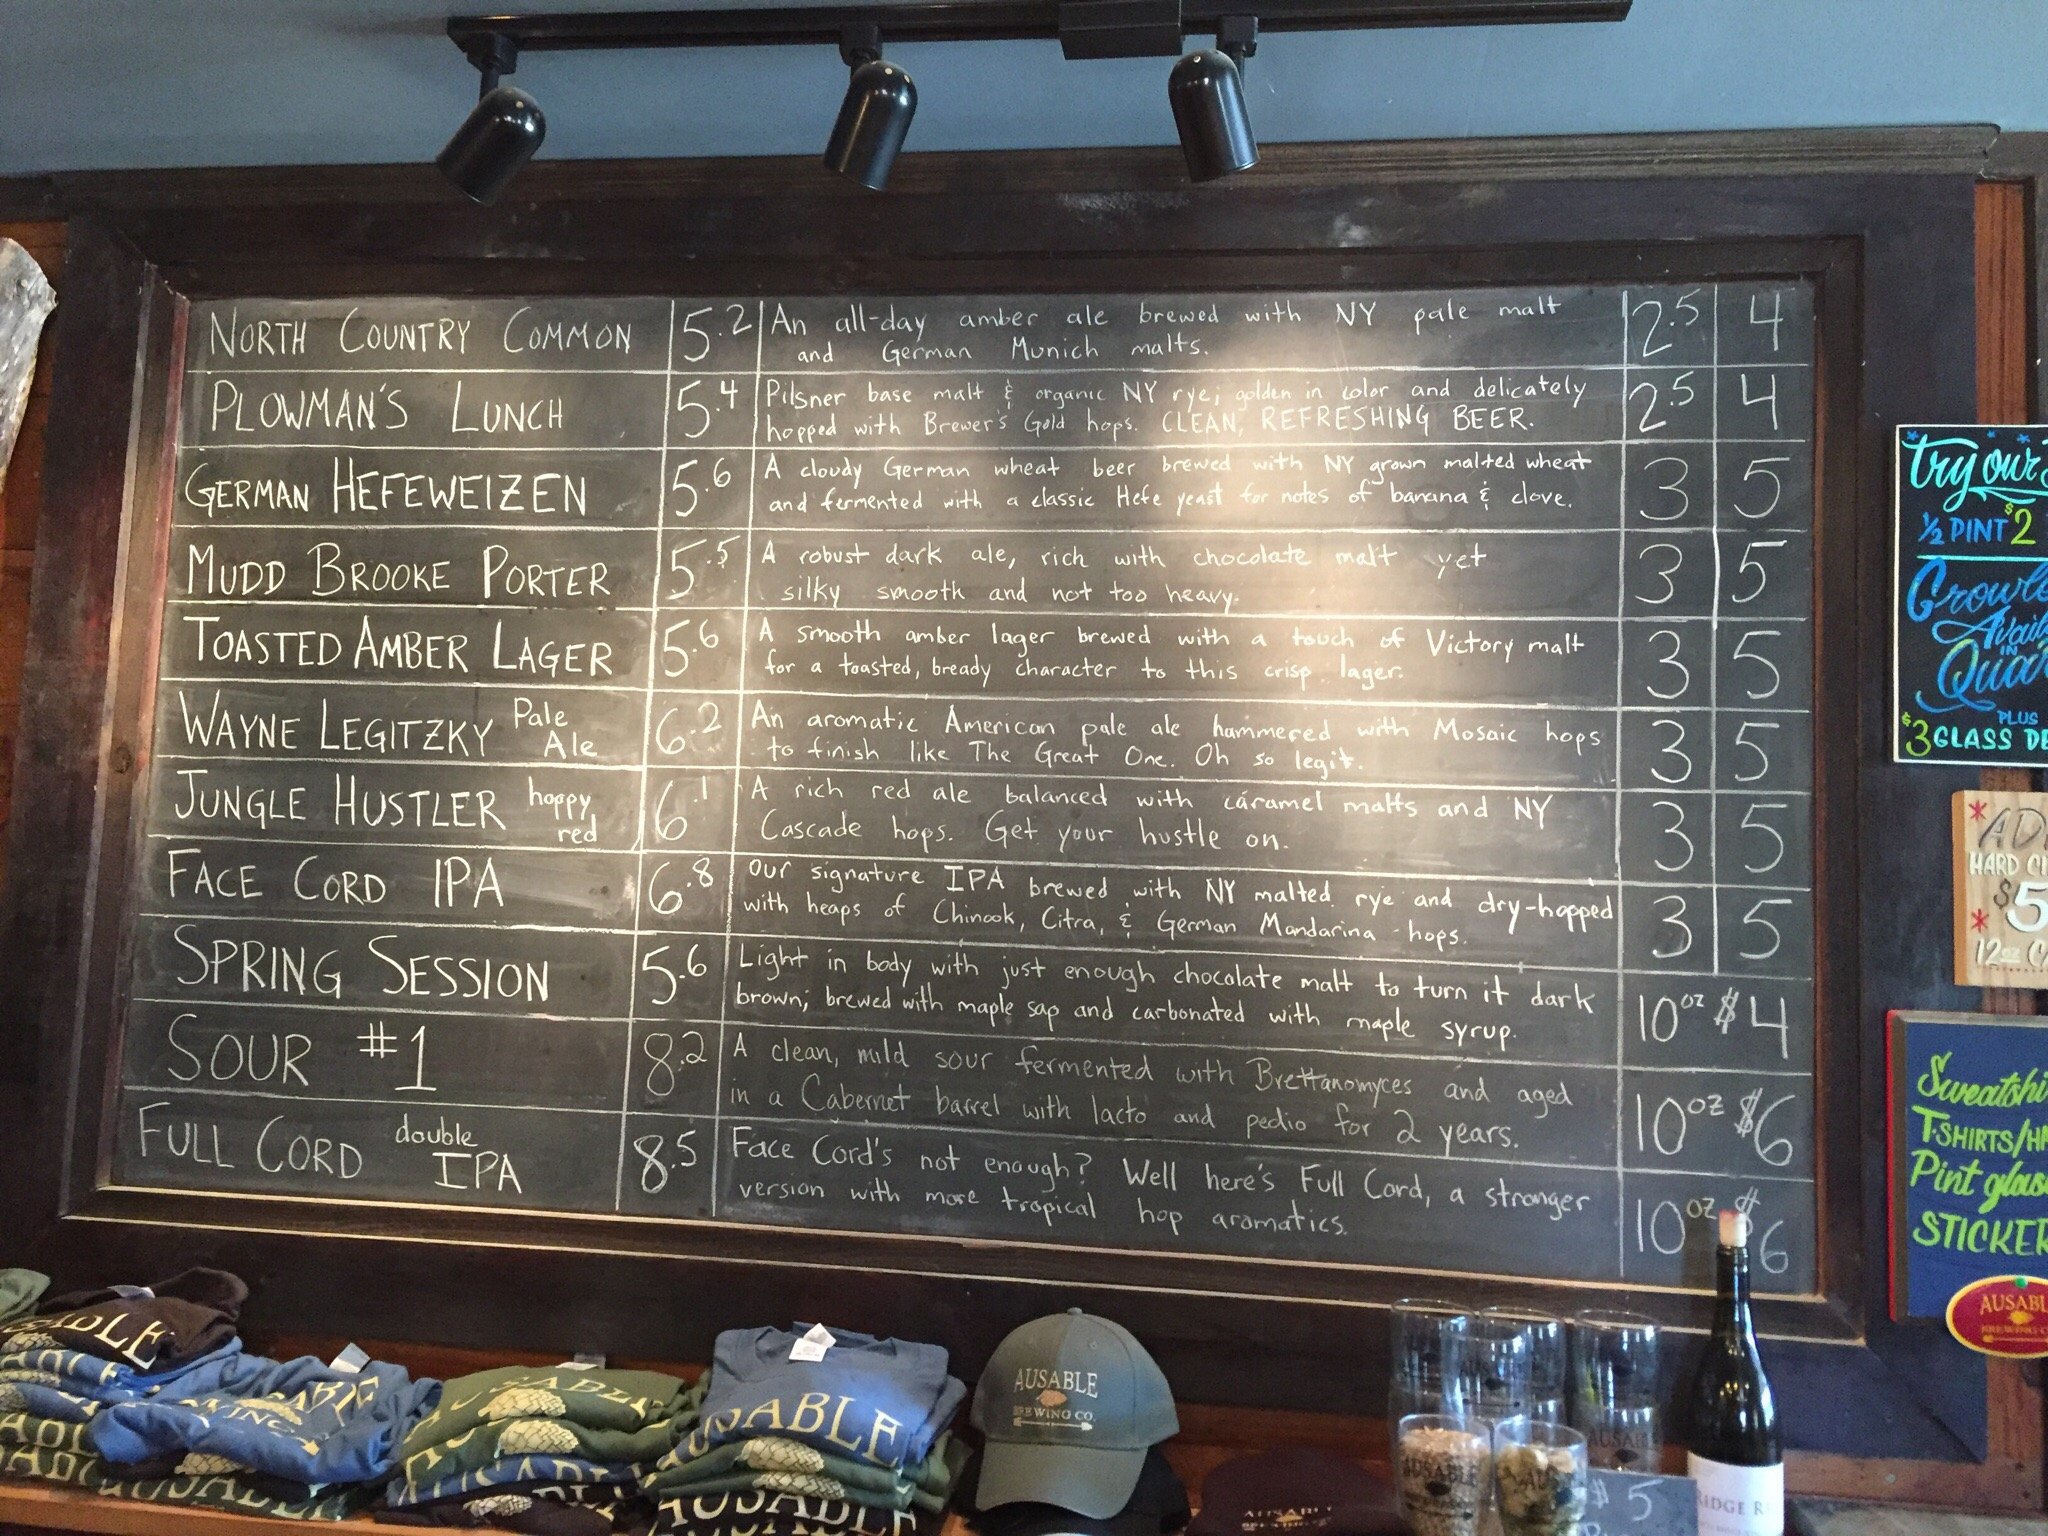 NORTH COUNTRY COMMON 5.2 An all-day amber ale brewed with NY pale malt 2.5 4
and German Munich malts.
PLOWMAN'S LUNCH 5.4 Pilsner base malt & organic NY rye; golden in color and delicately 2.5 4
hopped with Brewer's Gold hops. CLEAN, REFRESHING BEER.
GERMAN HEFEWEIZEN 5.6 A cloudy German wheat beer brewed with NY grown malted wheat 3 5
and fermented with a classic Hefe yeast for notes of banana & clove.
MUDD BROOKE PORTER 5.5 A robust dark ale, rich with chocolate malt yet 3 5
silky smooth and not too heavy.
TOASTED AMBER LAGER 5.6 A smooth amber lager brewed with a touch of Victory malt 3 5
for a toasted, bready character to this crisp lager.
WAYNE LEGITZKY Pale Ale 6.2 An aromatic American pale ale hammered with Mosaic hops 3 5
to finish like The Great One. Oh so legit.
JUNGLE HUSTLER hoppy red 6.1 A rich red ale balanced with caramel malts and NY 3 5
Cascade hops. Get your hustle on.
FACE CORD IPA 6.8 Our signature IPA brewed with NY malted rye and dry-hopped 3 5
with heaps of Chinook, Citra, & German Mandarina hops.
SPRING SESSION 5.6 Light in body with just enough chocolate malt to turn it dark 10oz $4
brown; brewed with maple sap and carbonated with maple syrup.
SOUR #1 8.2 A clean, mild sour fermented with Brettanomyces and aged 10oz $6
in a Cabernet barrel with lacto and pedio for 2 years.
FULL CORD double IPA 8.5 Face Cord's not enough? Well here's Full Cord, a stronger 10oz $6
version with more tropical hop aromatics.
try our
1/2 PINT $2
Growle
Avail
IN
Quar
PLUS
$3 GLASS DE
AD
HARD CI
$5
12oz C
Sweatshi
T-SHIRTS/HA
Pint glas
STICKER
AUSABL
BREWING CO
ADLE
AUSABLE
USABLE
AUSABLE
AUSABLE
BREWING CO.
AUSABLE
$5
RIDGE R